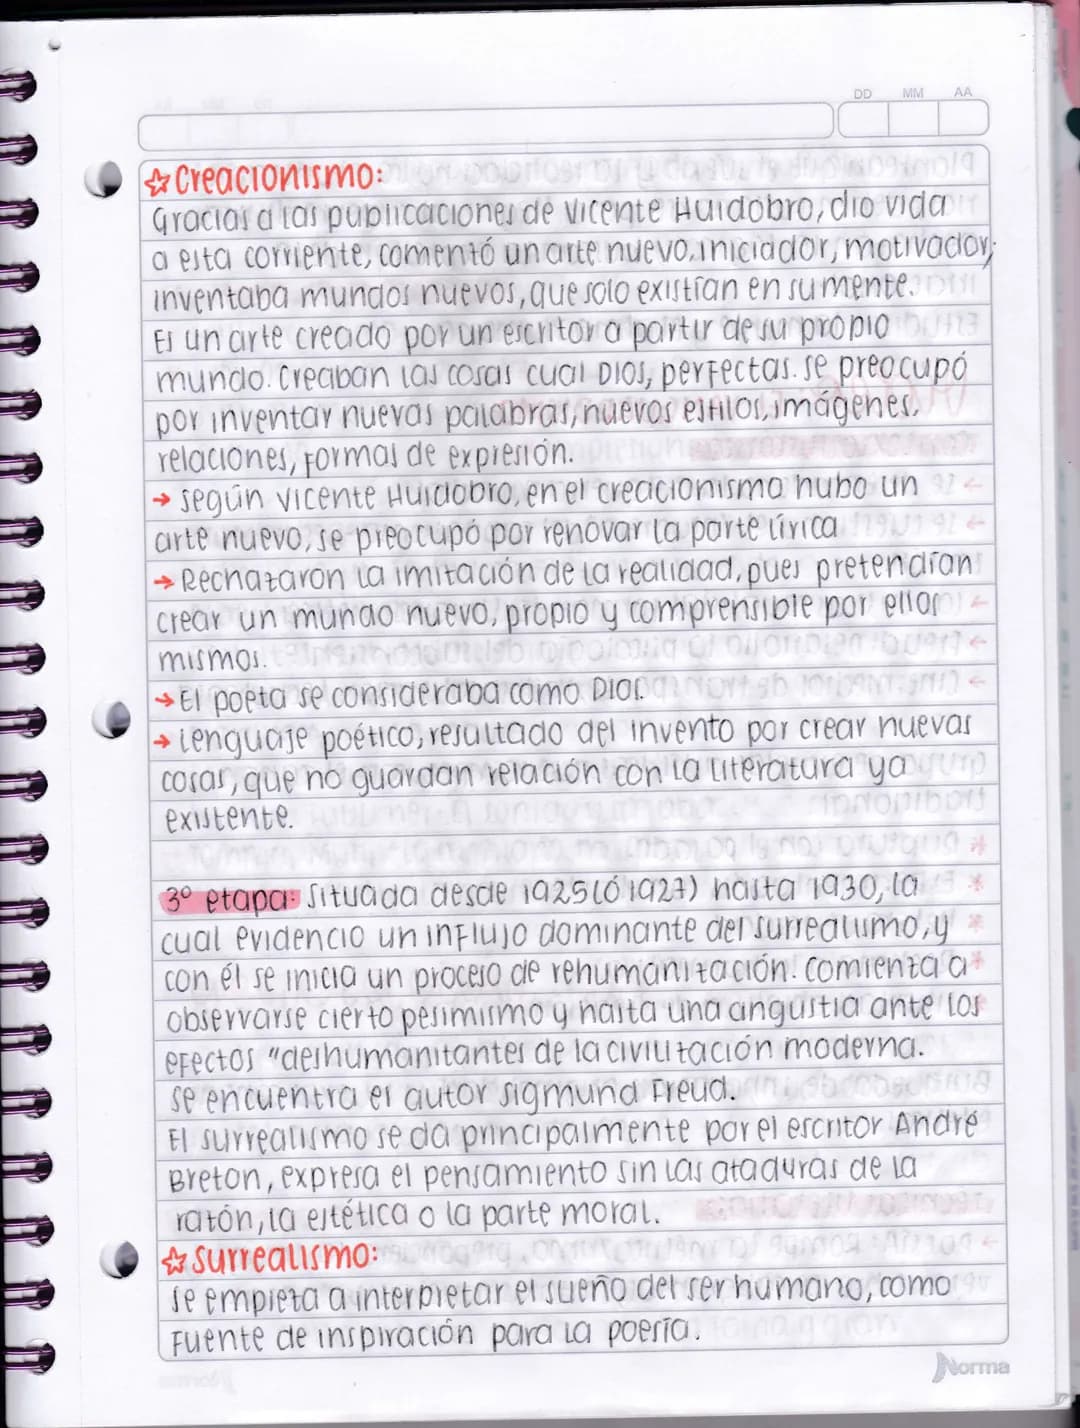 DD MM AA
☆ Creacionismo:
Gracias a las publicaciones de Vicente Huidobro, dio vida
a esta corriente, comentó un arte nuevo, iniciador, motivador,
inventaba mundos nuevos, que solo existían en su mente.
Es un arte creado por un escritor a partir de su propio
mundo. Creaban las cosas cual Dios, perfectas. Se preocupó
por inventar nuevas palabras, nuevos estilos, imágenes,
relaciones, formas de expresión.
→ Según Vicente Huidobro, en el creacionismo hubo un
arte nuevo, se preocupó por renovar la parte lírica
→ Rechazaron la imitación de la realidad, pues pretendían
crear un mundo nuevo, propio y comprensible por ellos
mismos.
→ El poeta se consideraba como Dios.
→ Lenguaje poético, resultado del invento por crear nuevas
cosas, que no guardan relación con la literatura ya
existente.
3° etapa: Situada desde 1925 (ó 1927) hasta 1930, la
cual evidencio un influjo dominante del surrealismo, y
con él se inicia un proceso de rehumanización. Comienza a
observarse cierto pesimismo y hasta una angustia ante los
efectos "deshumanizantes de la civilización moderna.
Se encuentra el autor Sigmund Freud.
El surrealismo se da principalmente por el escritor André
Breton, expresa el pensamiento sin las ataduras de la
razón, la estética o la parte moral.
☆ Surrealismo:
Se empieza a interpretar el sueño del ser humano, como
fuente de inspiración para la poesía.
Norma